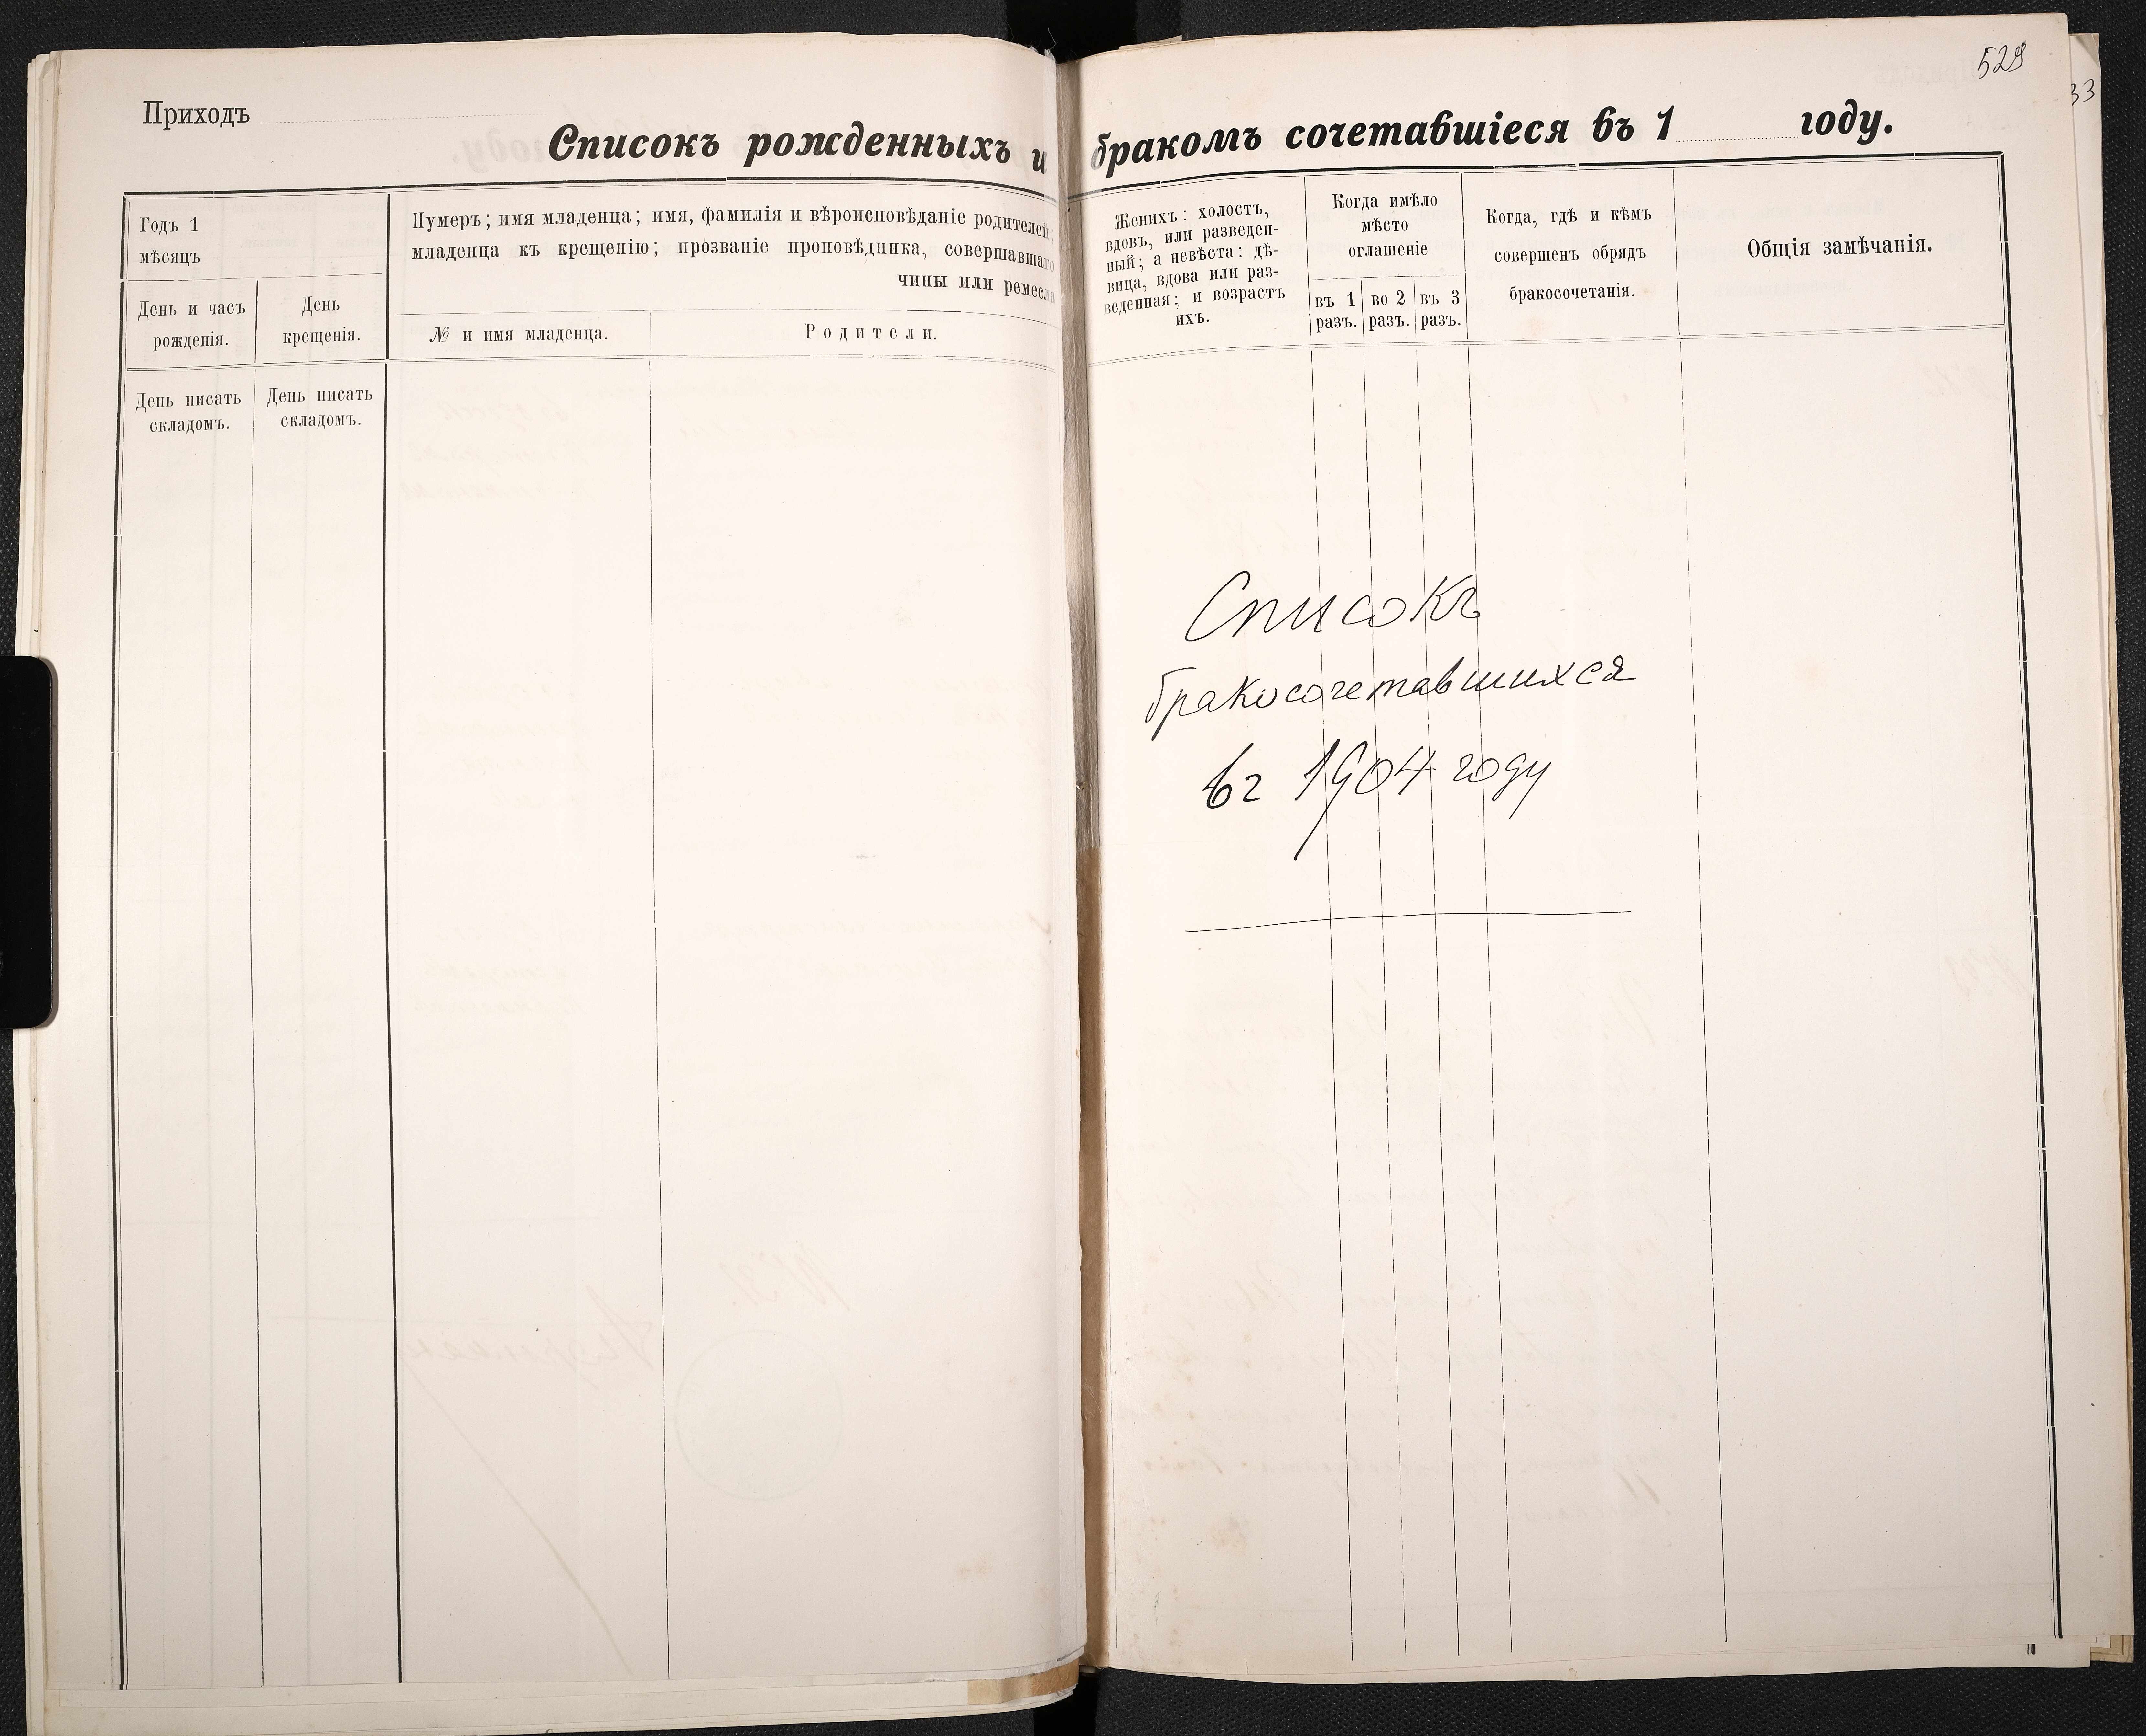 Приходъ
Списокъ рожденныхъ и
Годъ 1
мѣсяцъ
День и часъ
рожденія.
День
крещенія.
Нумеръ; имя младенца; имя, фамилія и вѣроисповѣданіе родителей;
младенца къ крещенію; прозваніе проповѣдника, совершавшаго
чины или ремесла
№ и имя младенца.
Родители.
День писать
складомъ.
День писать
складомъ.
529
33
бракомъ сочетавшіеся въ 1 году.
Женихъ: холостъ,
вдовъ, или разведен-
ный; а невѣста: дѣ-
вица, вдова или раз-
веденная; и возрастъ
ихъ.
Когда имѣло
мѣсто
оглашеніе
въ 1
разъ.
во 2
разъ.
въ 3
разъ.
Когда, гдѣ и кѣмъ
совершенъ обрядъ
бракосочетанія.
Общія замѣчанія.
Списокъ
бракосочетавшихся
въ 1904 году